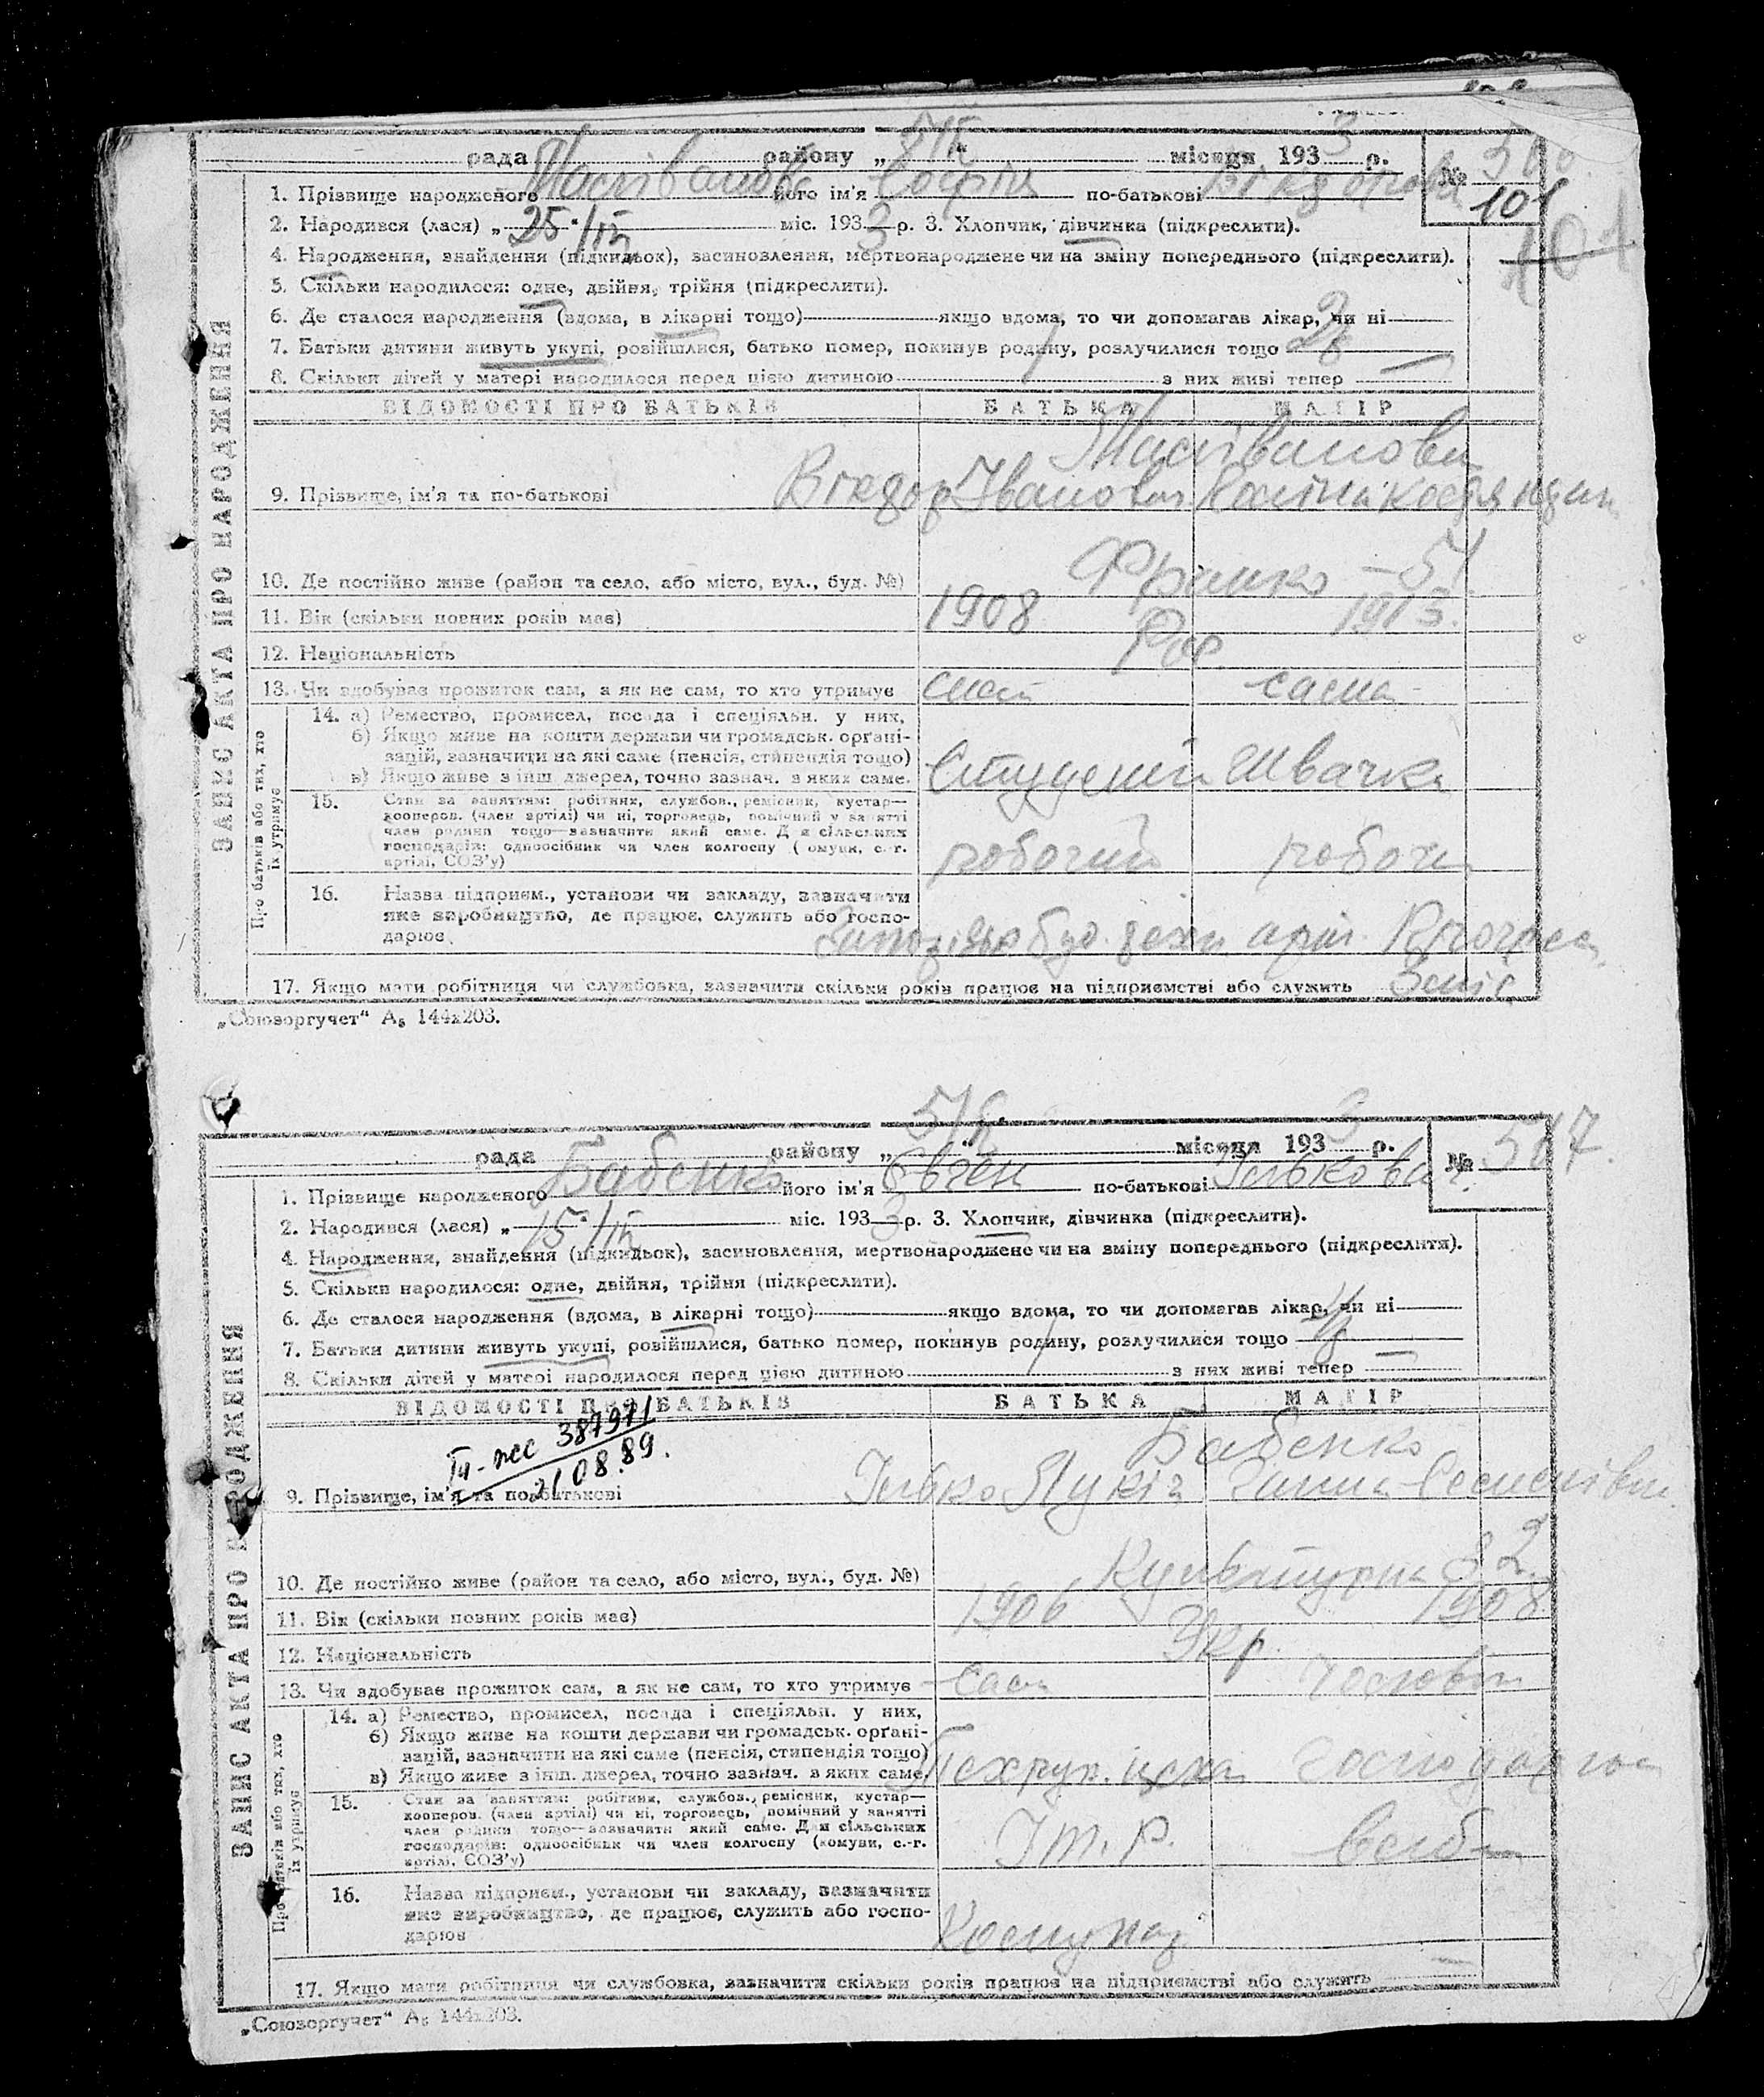 рада району „ 5/IV “ місяця 1933 р. №
101
101
1. Прізвище народженого його ім'я Софія по-батькові
2. Народився (лася) „ 25/III міс. 1933 р. 3. Хлопчик, дівчинка (підкреслити).
4. Народження, знайдення (підкидьок), засиновлення, мертвонароджене чи на зміну попереднього (підкреслити).
5. Скільки народилося: одне, двійня, трійня (підкреслити).
6. Де сталося народження (вдома, в лікарні тощо) якщо вдома, то чи допомагав лікар, чи ні
7. Батьки дитини живуть укупі, розійшлися, батько помер, покинув родину, розлучилися тощо
8. Скільки дітей у матері народилося перед цією дитиною з них живі тепер —
ЗАПИС АКТА ПРО НАРОДЖЕННЯ
ВІДОМОСТІ ПРО БАТЬКІВ БАТЬКА МАТІР
9. Прізвище, ім'я та по-батькові Віктор Іванович
10. Де постійно живе (район та село, або місто, вул., буд. №) Франко – 51
11. Вік (скільки повних років має) 1908 1913.
12. Національність Рос.
13. Чи здобуває прожиток сам, а як не сам, то хто утримує сам сама
Про батьків або тих, хто їх утримує
14. а) Ремество, промисел, посада і спеціяльн. у них,
б) Якщо живе на кошти держави чи громадськ. орґані-
зацій, зазначити на які саме (пенсія, стипендія тощо)
в) Якщо живе з інш. джерел, точно зазнач. з яких саме.
Студент Швачка
15. Стан за заняттям: робітник, службов., ремісник, кустар—
кооперов. (член артілі) чи ні, торговець, помічний у занятті
член родини тощо—зазначити який саме. Для сільських
господарів: одноосібник чи член колгоспу (комуни, с.-г.
артілі, СОЗ'у)
робочий робоча
16. Назва підприєм., установи чи закладу, зазначити
яке виробництво, де працює, служить або госпо-
дарює.
буд. техн. арт. Прогрес
17. Якщо мати робітниця чи службовка, зазначити скільки років працює на підприємстві або служить
„Союзоргучет“ А₅ 144х203.
рада району „ 5/IV “ місяця 1933 р. № 517.
1. Прізвище народженого Бабенко його ім'я Євген по-батькові Ількович.
2. Народився (лася) „ 15/III міс. 1933 р. 3. Хлопчик, дівчинка (підкреслити).
4. Народження, знайдення (підкидьок), засиновлення, мертвонароджене чи на зміну попереднього (підкреслити).
5. Скільки народилося: одне, двійня, трійня (підкреслити).
6. Де сталося народження (вдома, в лікарні тощо) якщо вдома, то чи допомагав лікар, чи ні
7. Батьки дитини живуть укупі, розійшлися, батько помер, покинув родину, розлучилися тощо
8. Скільки дітей у матері народилося перед цією дитиною з них живі тепер —
ЗАПИС АКТА ПРО НАРОДЖЕННЯ
ВІДОМОСТІ ПРО БАТЬКІВ БАТЬКА МАТІР
387971
21.08.89.
Бабенко
9. Прізвище, ім'я та по-батькові Ілько Лукич Ганна Семенівна
10. Де постійно живе (район та село, або місто, вул., буд. №) Культурна 82.
11. Вік (скільки повних років має) 1906 1908
12. Національність Укр.
13. Чи здобуває прожиток сам, а як не сам, то хто утримує сам чоловік
Про батьків або тих, хто їх утримує
14. а) Ремество, промисел, посада і спеціяльн. у них,
б) Якщо живе на кошти держави чи громадськ. орґані-
зацій, зазначити на які саме (пенсія, стипендія тощо)
в) Якщо живе з інш. джерел, точно зазнач. з яких саме.
Техрук. цеха
15. Стан за заняттям: робітник, службов., ремісник, кустар—
кооперов. (член артілі) чи ні, торговець, помічний у занятті
член родини тощо—зазначити який саме. Для сільських
господарів: одноосібник чи член колгоспу (комуни, с.-г.
артілі, СОЗ'у)
Іт.Р.
16. Назва підприєм., установи чи закладу, зазначити
яке виробництво, де працює, служить або госпо-
дарює
Комунар
17. Якщо мати робітниця чи службовка, зазначити скільки років працює на підприємстві або служить —
„Союзоргучет“ А₅ 144х203.